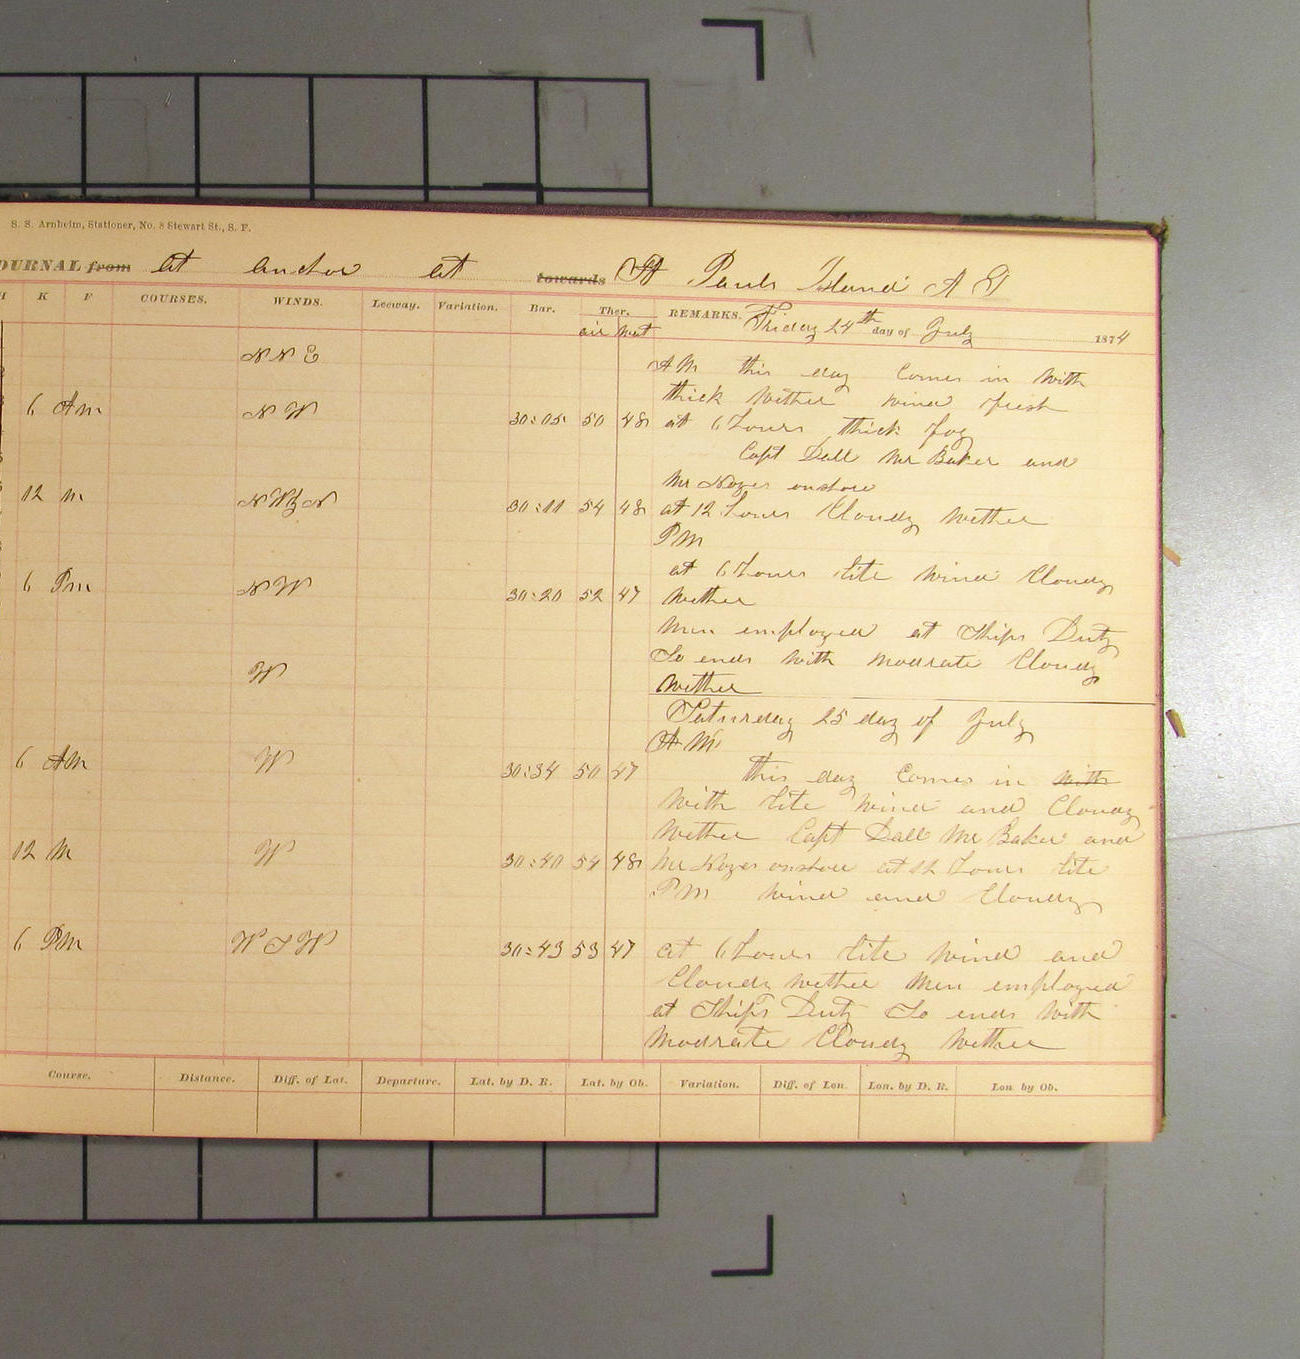 S. S. Arnheim, Stationer, No. 8 Stewart St., S. F.
OURNAL from at anchor at towards St Pauls Island A T
H K F COURSES. WINDS. Leeway. Variation. Bar. Ther. REMARKS. Friday 24th day of July 1874
air wat
N N E AM this day Comes in with
thick wether wind fresh
6 Am N W 30:05 50 48 at 6 hours thick fog
Capt Dall Mr Baker and
Mr Noyes onshore
12 m N W b N 30:11 54 48 at 12 hours Cloudy wether
PM
at 6 hours lite wind Cloudy
6 Pm N W 30:20 52 47 wether
Men employed at Ships Duty
So ends with modrate Cloudy
W wether
Saturday 25 day of July
A M
6 AM W 30:34 50 47 this day Comes in with
with lite wind and Cloudy
wether Capt Dall Mr Baker and
12 M W 30:40 54 48 Mr Noyes onshore at 12 hours lite
PM wind and Cloudy
6 PM W S W 30:43 53 47 at 6 hours lite wind and
Cloudy wether Men employed
at Ships Duty So ends with
modrate Cloudy wether
Course. Distance. Diff. of Lat. Departure. Lat. by D. R. Lat. by Ob. Variation. Diff. of Lon. Lon. by D. R. Lon by Ob.